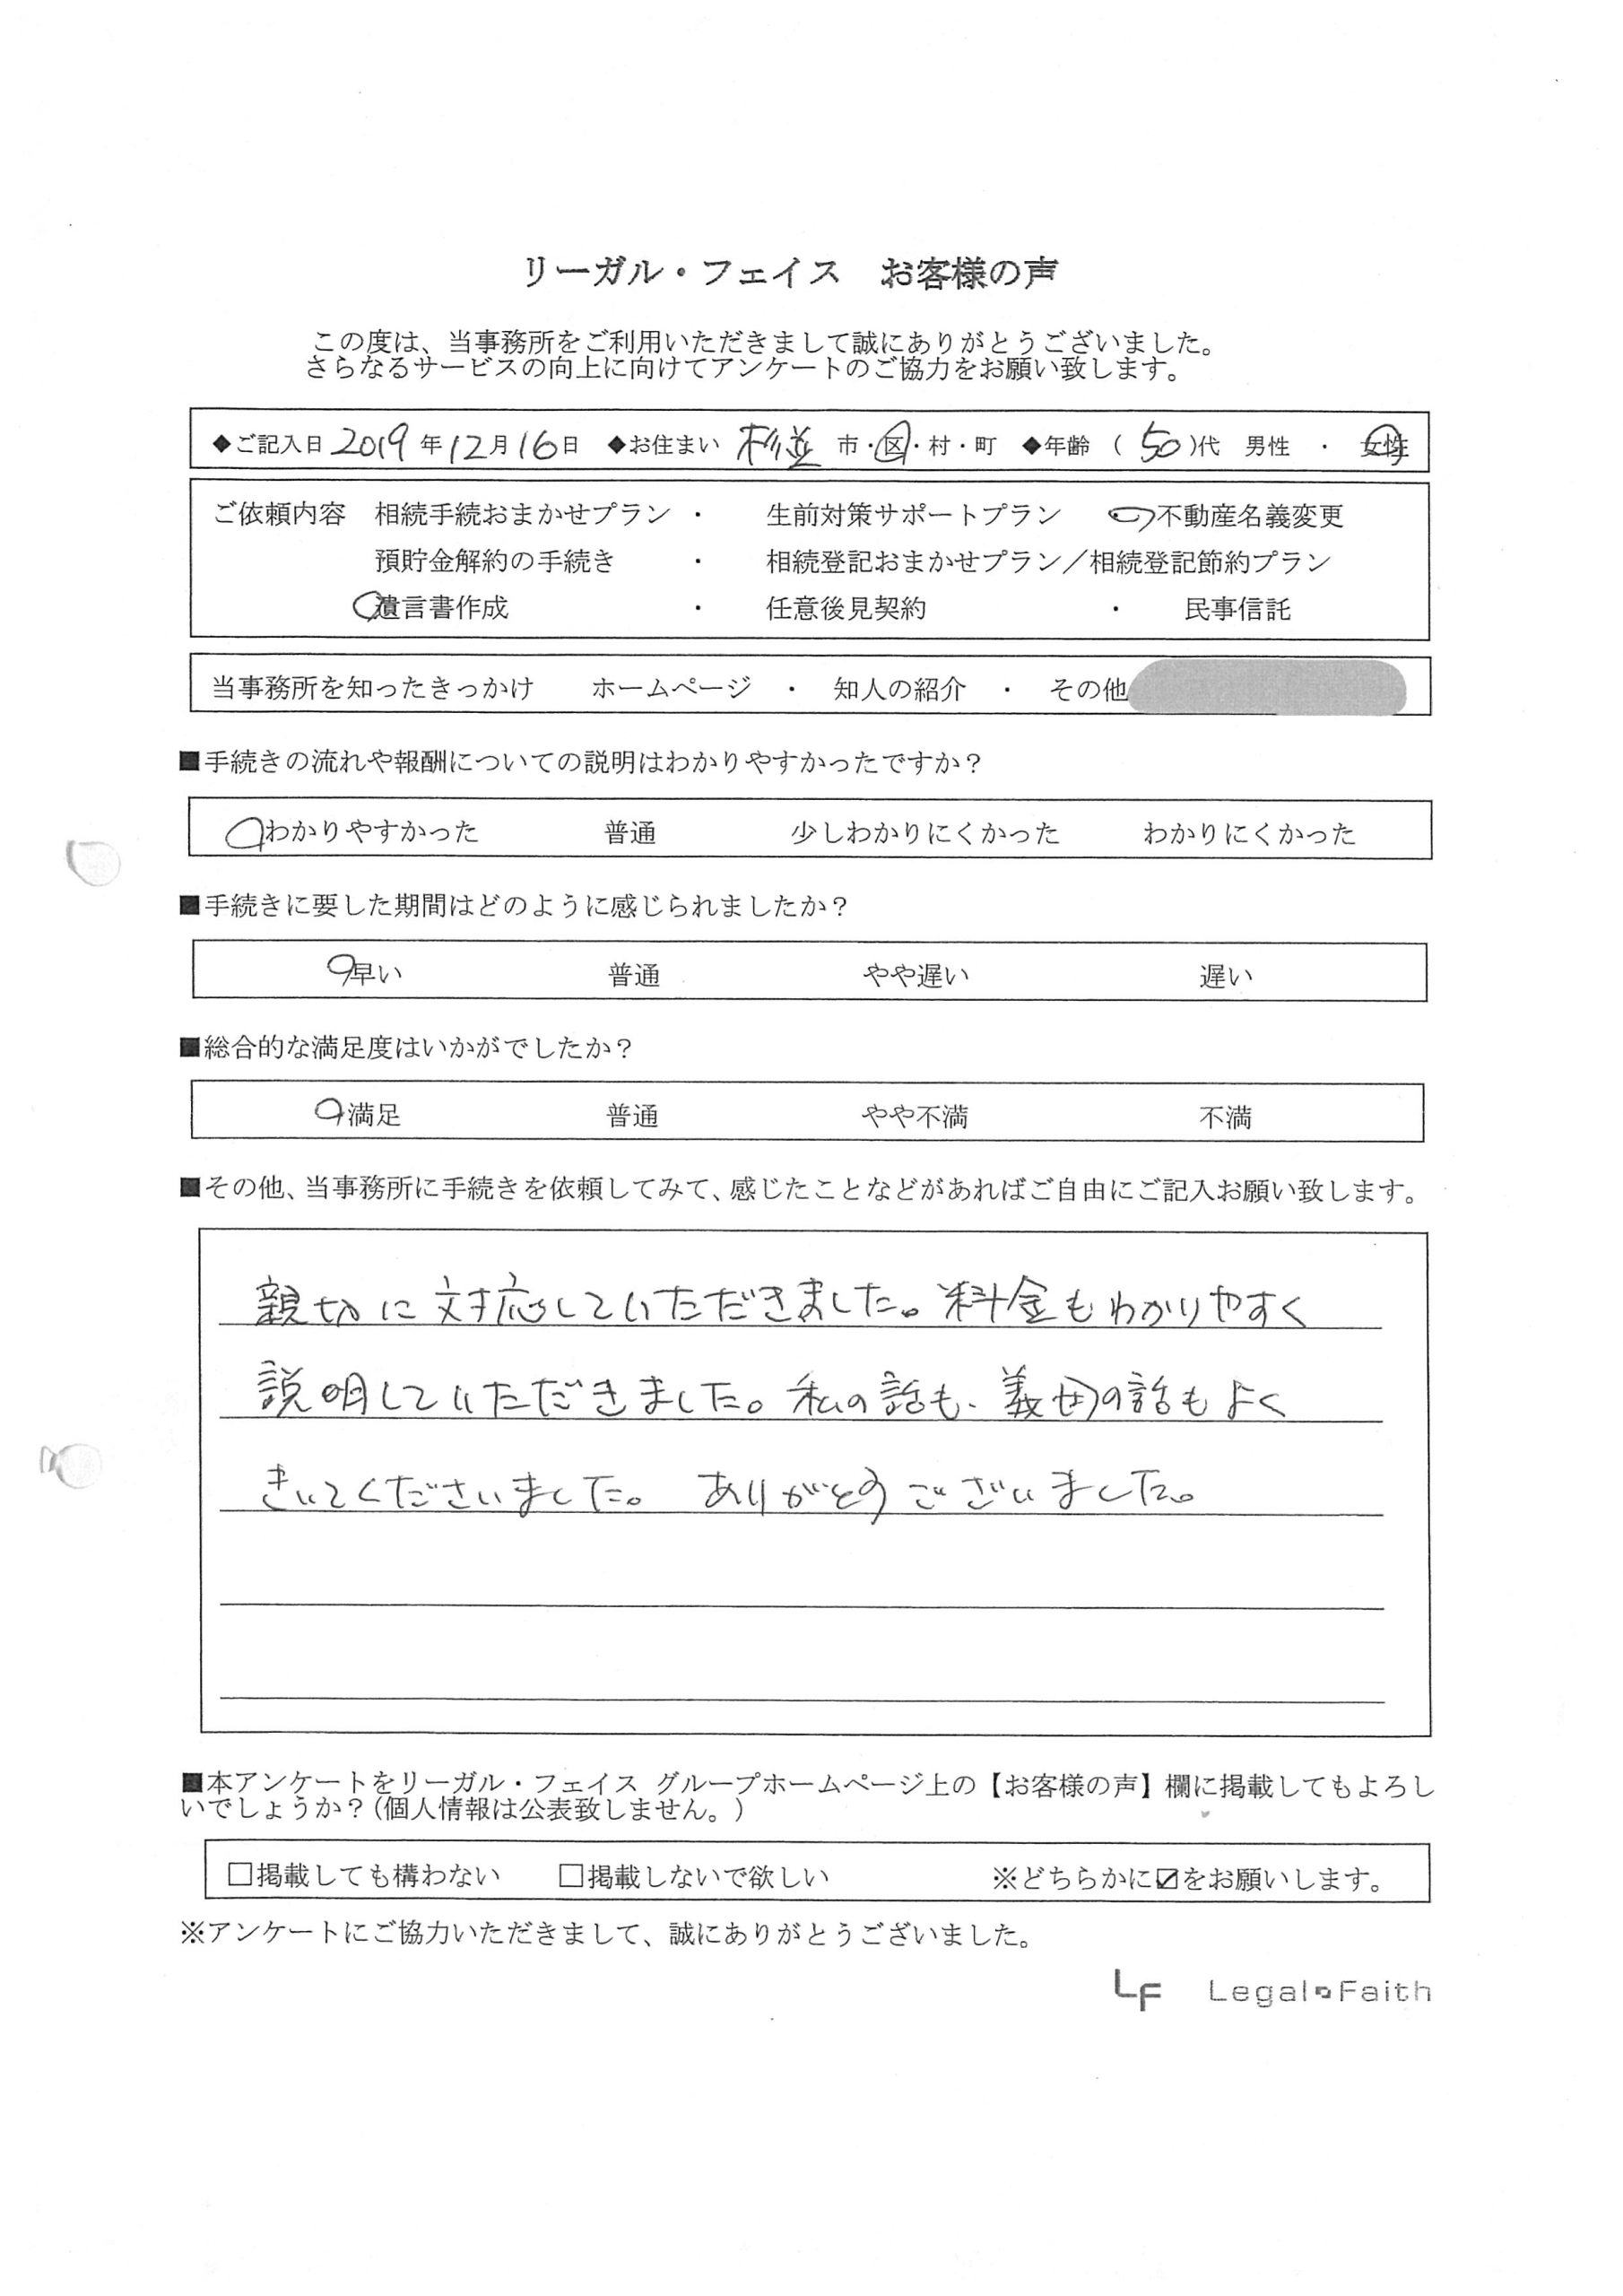 リーガル・フェイス　お客様の声
この度は、当事務所をご利用いただきまして誠にありがとうございました。
さらなるサービスの向上に向けてアンケートのご協力をお願い致します。
◆ご記入日 2019 年 12 月 16 日 ◆お住まい 杉並 市・区・村・町 ◆年齢 （ 50 ）代 男性 ・ 女性
ご依頼内容 相続手続おまかせプラン ・ 生前対策サポートプラン ・ 不動産名義変更
預貯金解約の手続き ・ 相続登記おまかせプラン／相続登記節約プラン
遺言書作成 ・ 任意後見契約 ・ 民事信託
当事務所を知ったきっかけ ホームページ ・ 知人の紹介 ・ その他
■手続きの流れや報酬についての説明はわかりやすかったですか？
わかりやすかった 普通 少しわかりにくかった わかりにくかった
■手続きに要した期間はどのように感じられましたか？
早い 普通 やや遅い 遅い
■総合的な満足度はいかがでしたか？
満足 普通 やや不満 不満
■その他、当事務所に手続きを依頼してみて、感じたことなどがあればご自由にご記入お願い致します。
親切に対応していただきました。料金もわかりやすく
説明していただきました。私の話も、義母の話もよく
きいてくださいました。 ありがとうございました。
■本アンケートをリーガル・フェイス グループホームページ上の【お客様の声】欄に掲載してもよろし
いでしょうか？（個人情報は公表致しません。）
□掲載しても構わない □掲載しないで欲しい ※どちらかに☑をお願いします。
※アンケートにご協力いただきまして、誠にありがとうございました。
LF Legal Faith